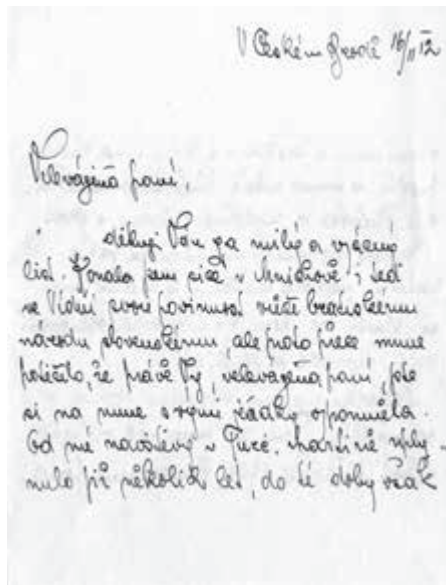 V Českém Brodě 16/11 12
Velevážená paní,
děkuji Vám za milý a vzácný
list. Konala jsem sice v Mnichově i teď
ve Vídni svou povinnost vůči bratrskému
národu slovenskému, ale proto přece mne
potěšilo, že právě Vy, velevážená paní, jste
si na mne svými řádky vzpomněla.
Od mé návštěvy v Turč. Martině uply-
nulo již několik let, do té doby však